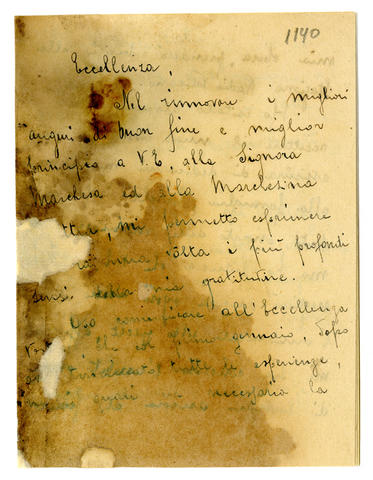 1140
Eccellenza,
Nel rinnovare i migliori
auguri di buon fine e miglior
principio a V. E, alla Signora
Marchesa ed alla Marchesina
mi permetto esprimere
volta i più profondi
sensi della mia gratitudine.
comunicare all'Eccellenza
che col primo gennaio, dopo
tratto di esperienze,
quali necessario la